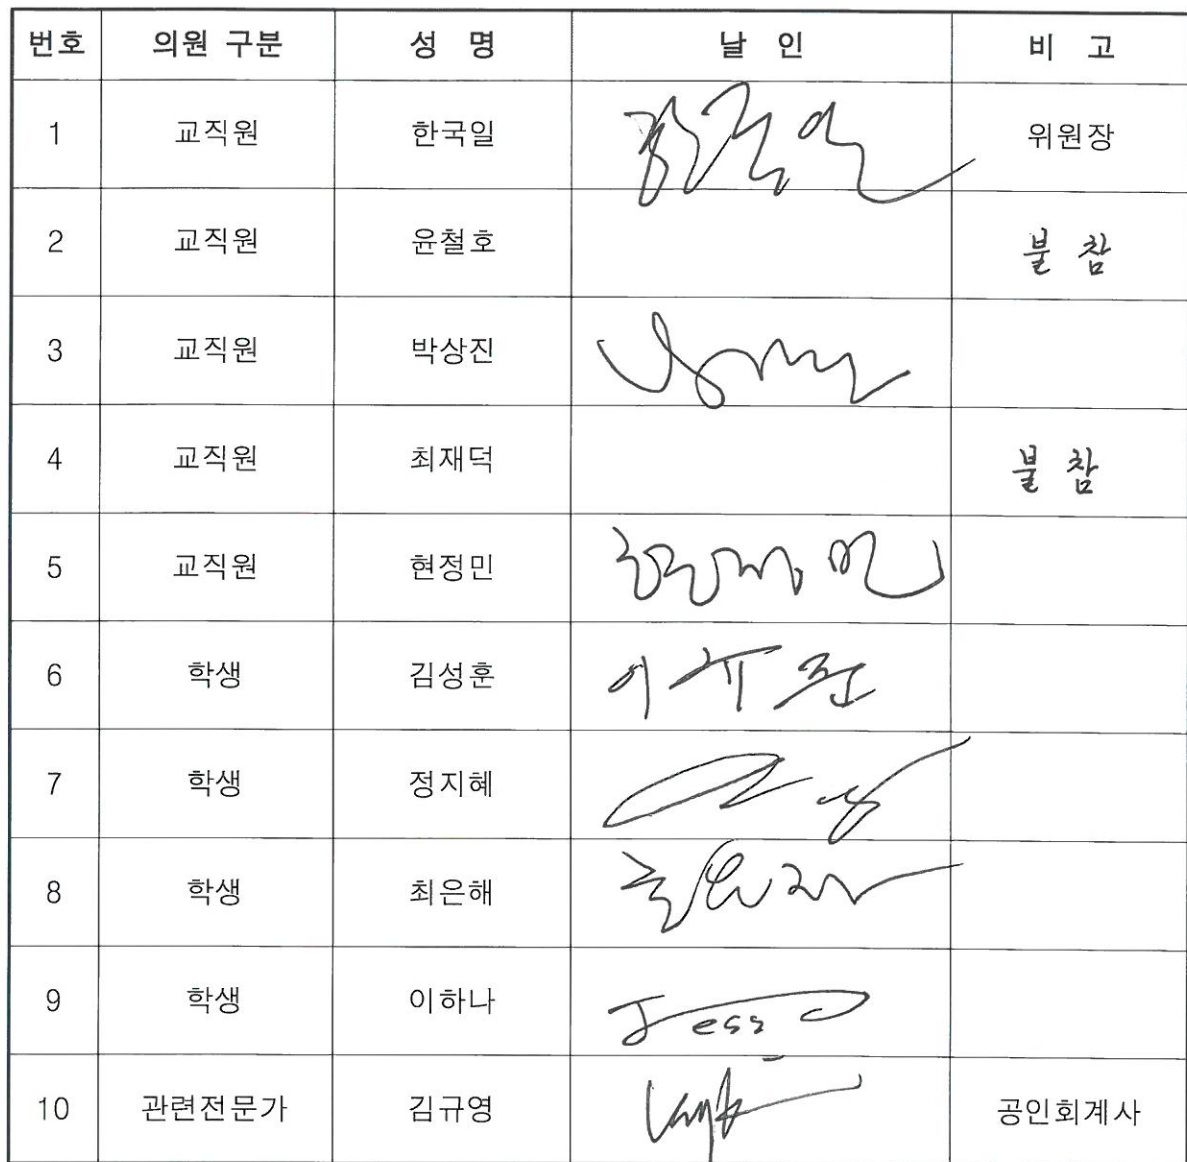 번호 의원 구분 성 명 날 인 비 고
1 교직원 한국일 위원장
2 교직원 윤철호 불참
3 교직원 박상진
4 교직원 최재덕 불참
5 교직원 현정민
6 학생 김성훈
7 학생 정지혜
8 학생 최은해
9 학생 이하나 Jess
10 관련전문가 김규영 공인회계사